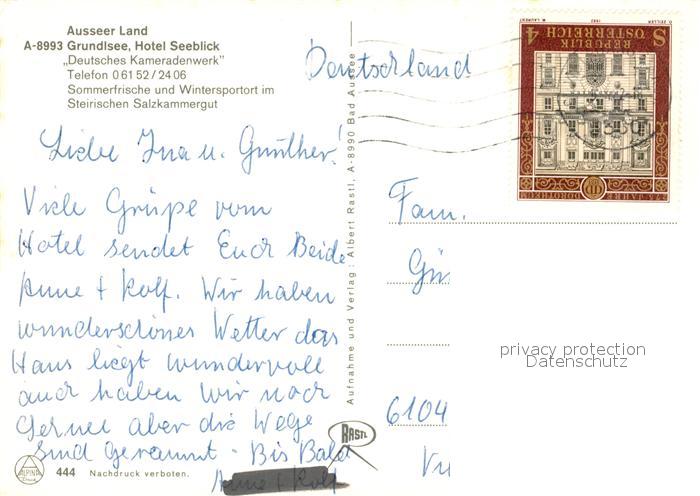 Ausseer Land
A-8993 Grundlsee, Hotel Seeblick
„Deutsches Kameradenwerk"
Telefon 0 61 52 / 24 06
Sommerfrische und Wintersportort im
Steirischen Salzkammergut
Liebe Ina u. Gunther!
Viele Grüße vom
Hotel sendet Euch Beide
Anne + Rolf. Wir haben
wunderschönes Wetter das
Haus liegt wundervoll
auch haben wir noch
Schnee aber die Wege
sind geräumt - Bis Bald
Anne + Rolf
444 Nachdruck verboten.
ALPINA
RASTL
Aufnahme und Verlag: Albert Rastl, A-8990 Bad Aussee
Deutschland
REPUBLIK
ÖSTERREICH
S 4
275 JAHRE DOROTHEUM
W. LAURENT 1982 O. ZEILLER
Fam.
Gü
privacy protection
Datenschutz
6104